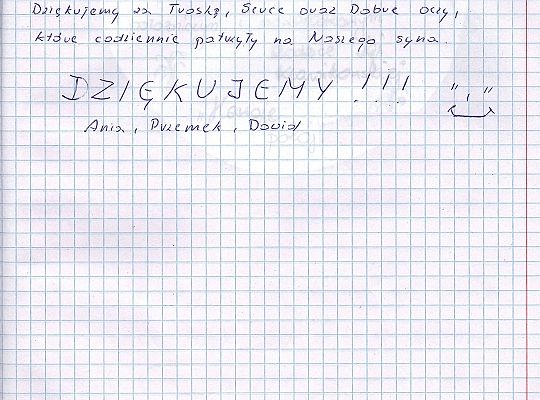 Dziękujemy za Troskę, Serce oraz Dobre oczy,
które codziennie patrzyły na Naszego syna.
DZIĘKUJEMY !!!
Ania, Przemek, Dawid